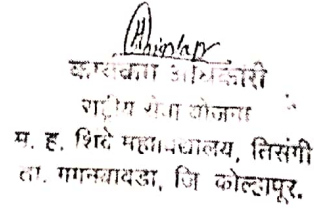 कार्यक्रम अधिकारी
राष्ट्रीय सेवा योजना
म. ह. शिंदे महाविद्यालय, तिसंगी
ता. गगनबावडा, जि कोल्हापूर.